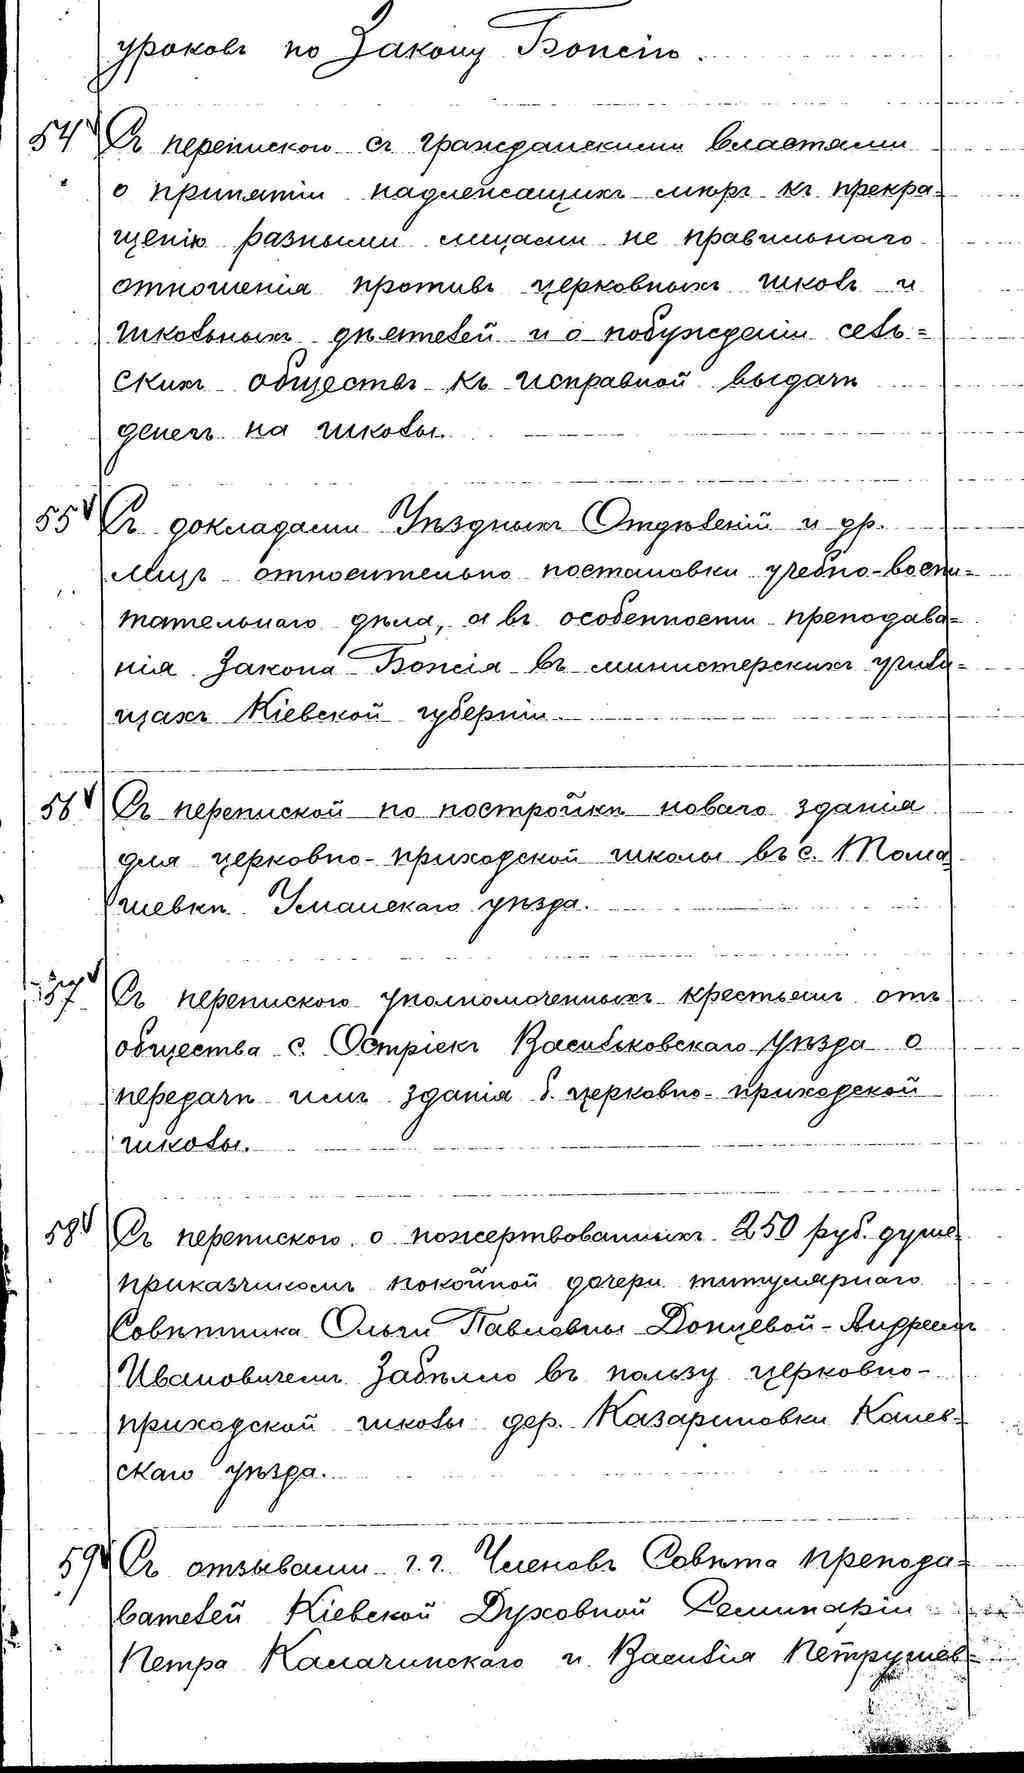 уроковъ по Закону Божію.
54 Съ перепискою съ гражданскими властями
о принятіи надлежащихъ мѣръ къ прекра=
щенію разными лицами не правильнаго
отношенія противъ церковныхъ школъ и
школьныхъ дѣятелей и о побужденіи сель=
скихъ обществъ къ исправной выдачѣ
денегъ на школы.
55 Съ докладами Уѣздныхъ Отдѣленій и др.
лицъ относительно постановки учебно-воспи=
тательнаго дѣла, а въ особенности преподава=
нія Закона Божія въ министерскихъ учили=
щахъ Кіевской губерніи.
56 Съ перепиской по постройкѣ новаго зданія
для церковно-приходской школы въ с. Тома=
шевкѣ Уманскаго уѣзда.
57 Съ перепискою уполномоченныхъ крестьянъ отъ
общества с. Острієкъ Васильковскаго уѣзда о
передачѣ имъ зданія б. церковно-приходской
школы.
58 Съ перепискою о пожертвованныхъ 250 руб. душе=
приказчикомъ покойной дочери титулярнаго
Совѣтника Ольги Павловны Донцевой-Андреемъ
Ивановичемъ Забѣлло въ пользу церковно-
приходской школы дер. Казариновки Канев=
скаго уѣзда.
59 Съ отзывами г.г. Членовъ Совѣта препода=
вателей Кіевской Духовной Семинаріи
Петра Калачинскаго и Василія Петрушев=